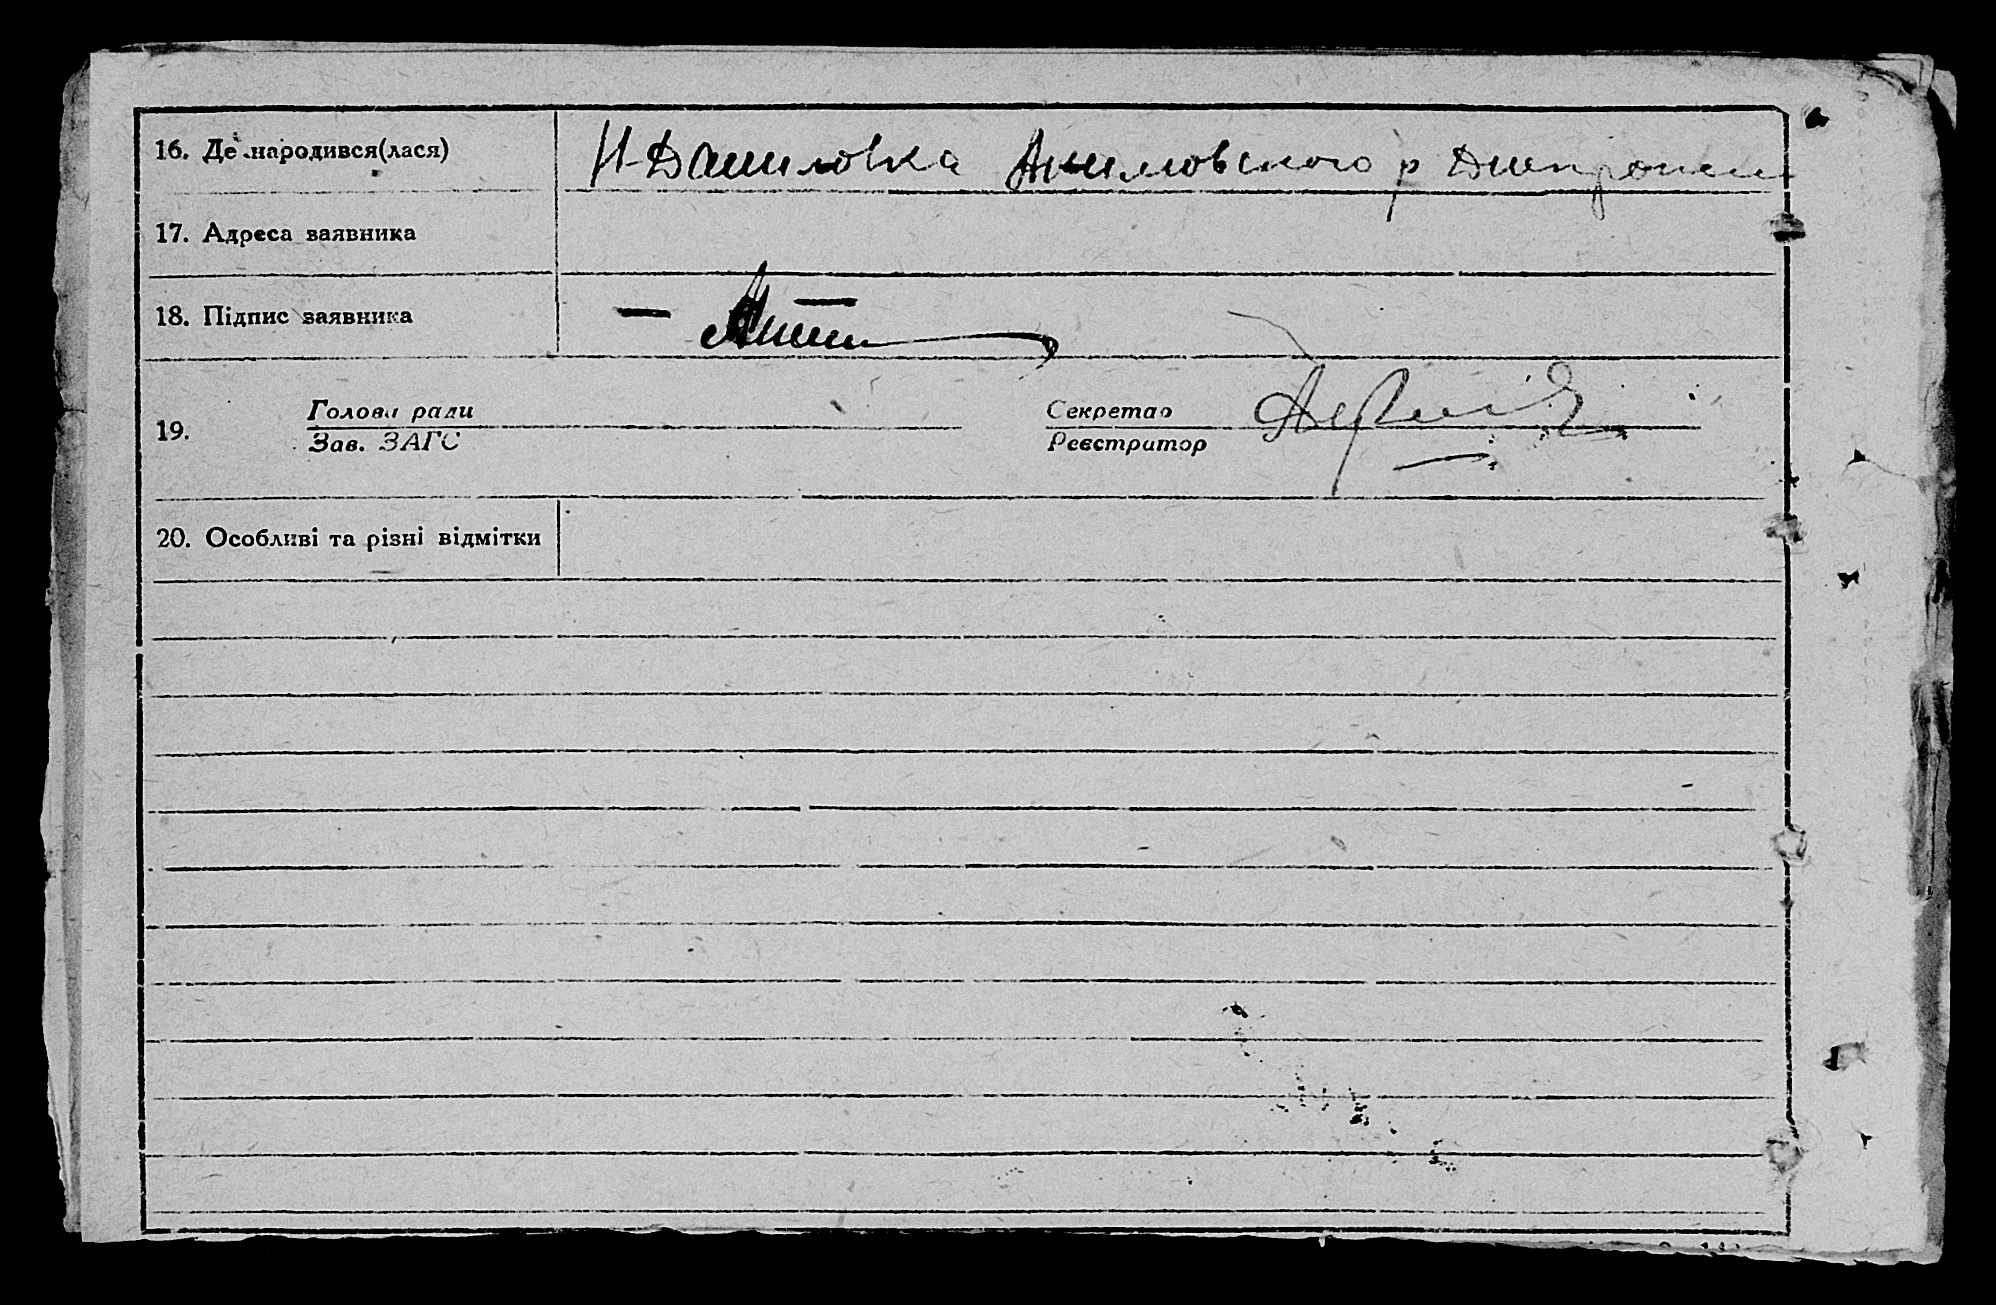 16. Де народився(лася) Н-Даниловка Акимовского р Днепропет
17. Адреса заявника
18. Підпис заявника
19. Голова ради Секретар
Зав. ЗАГС Реєстратор
20. Особливі та різні відмітки